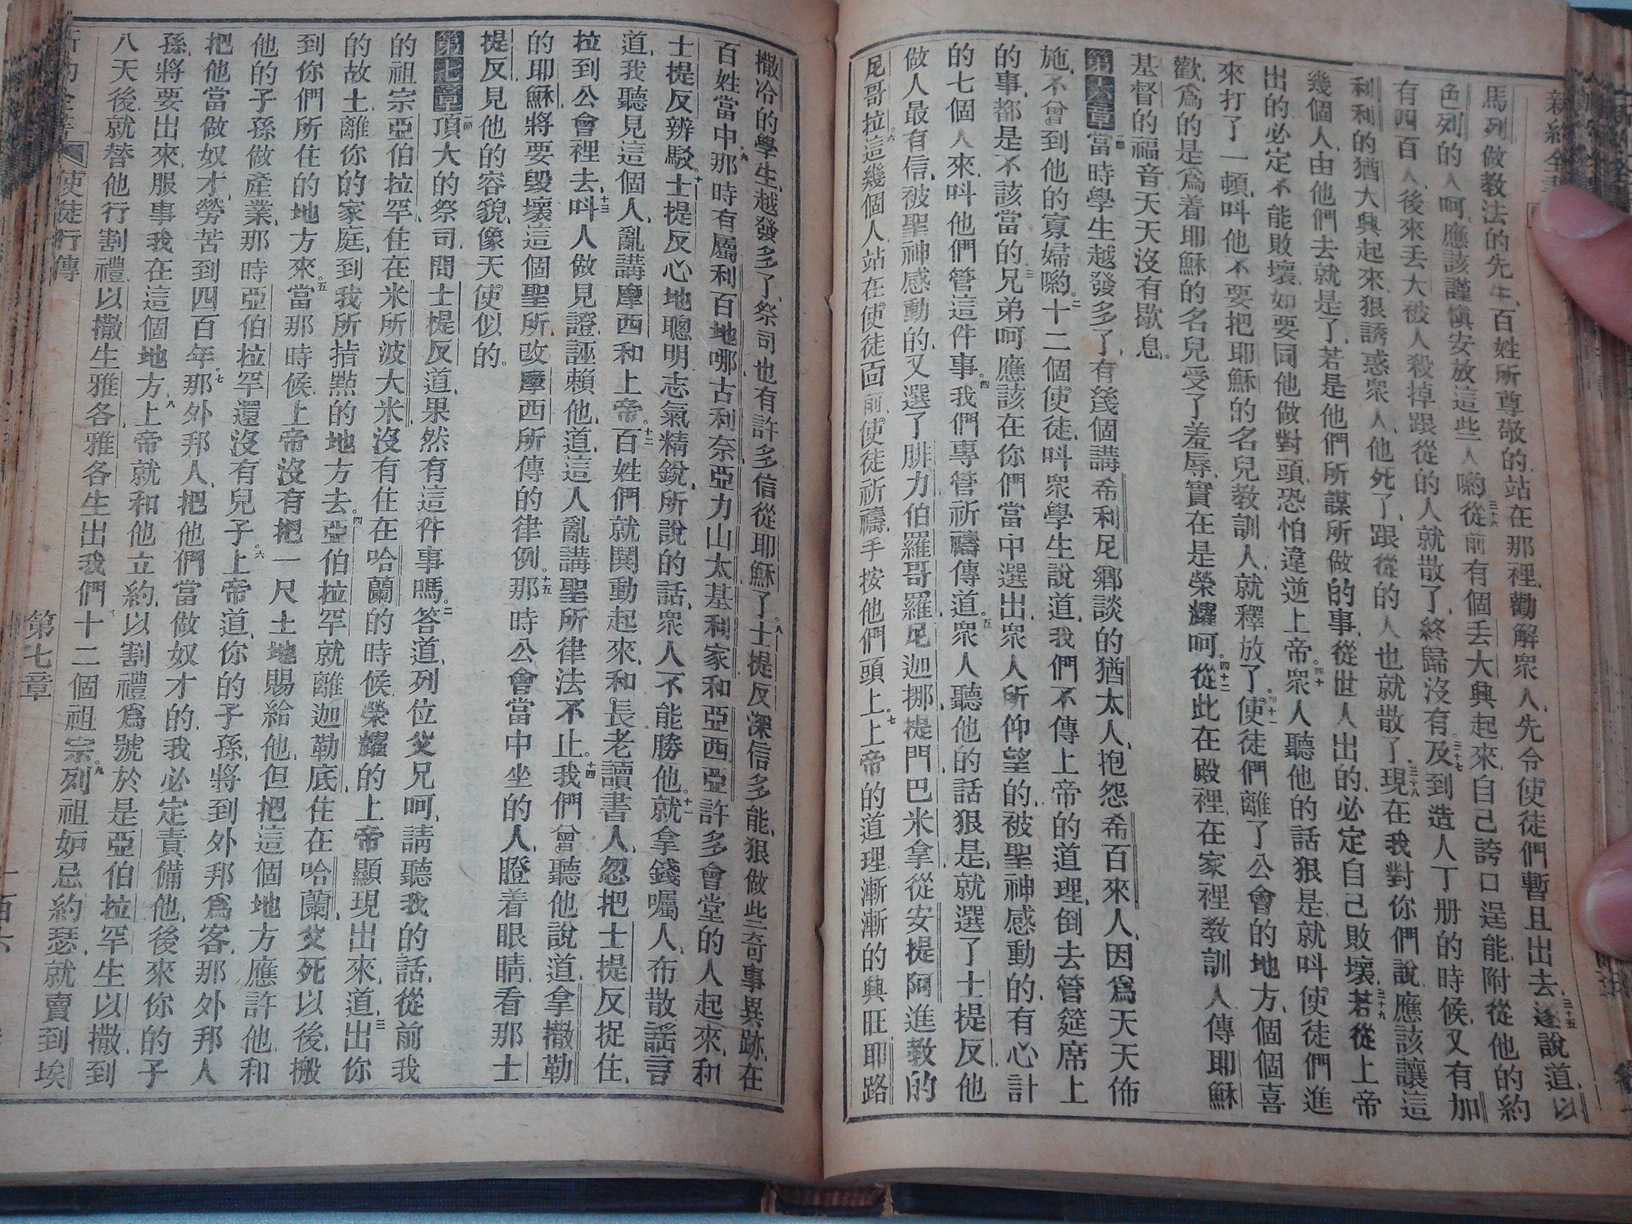 新約全書
馬列做教法的先生、百姓所尊敬的、站在那裡、勸解衆人、先令使徒們暫且出去、三十五遂說道、以
色列的人呵、應該謹愼安放這些人喲、三十六從前有個丟大興起來、自己誇口逞能、附從他的約
有四百人、後來丟大被人殺掉、跟從的人就散了、終歸沒有、三十七及到造人丁册的時候、又有加
利利的猶大興起來、狠誘惑衆人、他死了、跟從的人也就散了、三十八現在我對你們說、應該讓這
幾個人、由他們去就是了、若是他們所謀所做的事、從世人出的、必定自己敗壞、三十九若從上帝
出的、必定不能敗壞、如要同他做對頭、恐怕違逆上帝、四十衆人聽他的話狠是、就呌使徒們進
來、打了一頓、呌他不要把耶穌的名兒教訓人、就釋放了、四十一使徒們離了公會的地方、個個喜
歡、爲的是爲着耶穌的名兒受了羞辱、實在是榮耀呵、四十二從此在殿裡、在家裡、教訓人、傳耶穌
基督的福音、天天沒有歇息。
第六章一當時學生越發多了、有幾個講希利尼鄉談的猶太人、抱怨希百來人、因爲天天佈
施、不曾到他的寡婦喲、二十二個使徒、呌衆學生說道、我們不傳上帝的道理、倒去管筵席上
的事、都是不該當的、三兄弟呵、應該在你們當中選出衆人所仰望的、被聖神感動的、有心計
的七個人來、呌他們管這件事、四我們專管祈禱傳道、五衆人聽他的話狠是、就選了士提反、他
做人最有信、被聖神感動的、又選了腓力伯羅哥羅尼迦挪提門巴米拿、從安提阿進教的
尼哥拉、六這幾個人站在使徒面前、使徒祈禱、手按他們頭上、七上帝的道理漸漸的興旺、耶路
撒冷的學生、越發多了、祭司也有許多信從耶穌了、八士提反深信多能、狠做些奇事異跡、在
百姓當中、九那時有屬利百地哪古利奈亞力山太基利家和亞西亞許多會堂的人起來、和
士提反辨駁、十士提反心地聰明、志氣精銳、所說的話、衆人不能勝他、十一就拿錢囑人、布散謠言
道、我聽見這個人、亂講摩西和上帝、十二百姓們就閧動起來、和長老讀書人、忽把士提反捉住、
拉到公會裡去、十三呌人做見證、誣賴他道、這人亂講聖所律法不止、十四我們曾聽他說道、拿撒勒
的耶穌將要毀壞這個聖所、改摩西所傳的律例、十五那時公會當中坐的人、瞪着眼睛看那士
提反、見他的容貌像天使似的。
第七章一頂大的祭司問士提反道、果然有這件事嗎、二答道、列位父兄呵、請聽我的話、從前我
的祖宗亞伯拉罕、住在米所波大米、沒有住在哈蘭的時候、榮耀的上帝顯現出來道、三出你
的故土、離你的家庭、到我所指點的地方去、四亞伯拉罕就離迦勒底、住在哈蘭、父死以後、搬
到你們所住的地方來、五當那時候、上帝沒有把一尺土地賜給他、但把這個地方應許他和
他的子孫做產業、那時亞伯拉罕還沒有兒子、六上帝道、你的子孫將到外邦爲客、那外邦人
把他當做奴才、勞苦到四百年、七那外邦人把他們當做奴才的、我必定責備他、後來你的子
孫將要出來、服事我在這個地方、八上帝就和他立約、以割禮爲號、於是亞伯拉罕生以撒、到
八天後、就替他行割禮、以撒生雅各、雅各生出我們十二個祖宗、九列祖妒忌約瑟、就賣到埃
使徒行傳
第七章